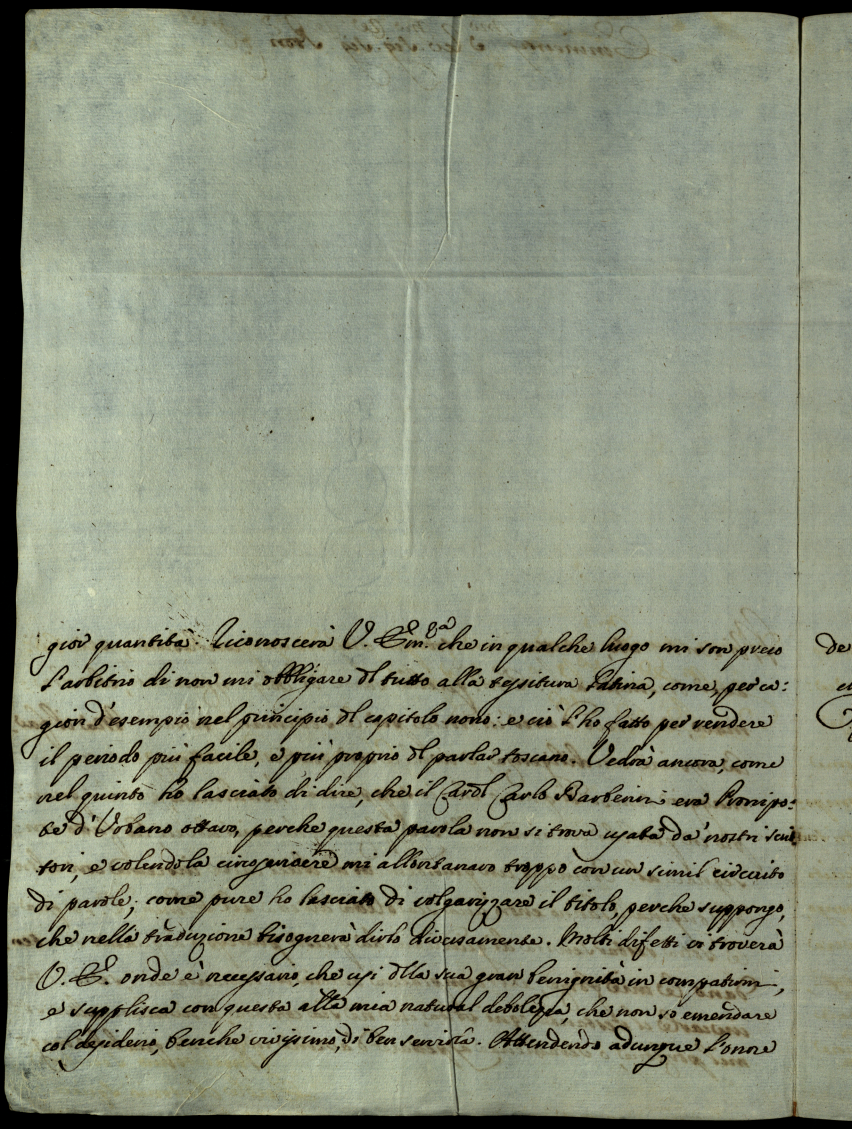 gior quantità. Riconoscerà V. Em.za che in qualche luogo mi son preso
l'arbitrio di non mi obbligare del tutto alla tessitura latina, come, per ca:
gion d'esempio nel principio del capitolo nono: e ciò l'ho fatto per rendere
il periodo più facile, e più proprio del parlar toscano. Vedrà ancora, come
nel quinto ho lasciato di dire, che il Card.l Carlo Barberini era Pronipo:
te d'Urbano ottavo, perche questa parola non si trova usata da' nostri scrit
tori, e volendola circonscrivere mi allontanavo troppo con un simil circuito
di parole; come pure ho lasciato di volgarizzare il titolo, perche suppongo,
che nella traduzione bisognerà dirlo diversamente. Molti difetti vi troverà
V. E. onde è necessario, che usi della sua gran benignità in compatirmi,
e supplisca con questa alla mia natural debolezza, che non so emendare
col desiderio, benche vivissimo, di ben servirla. Attendendo adunque l'onore
de